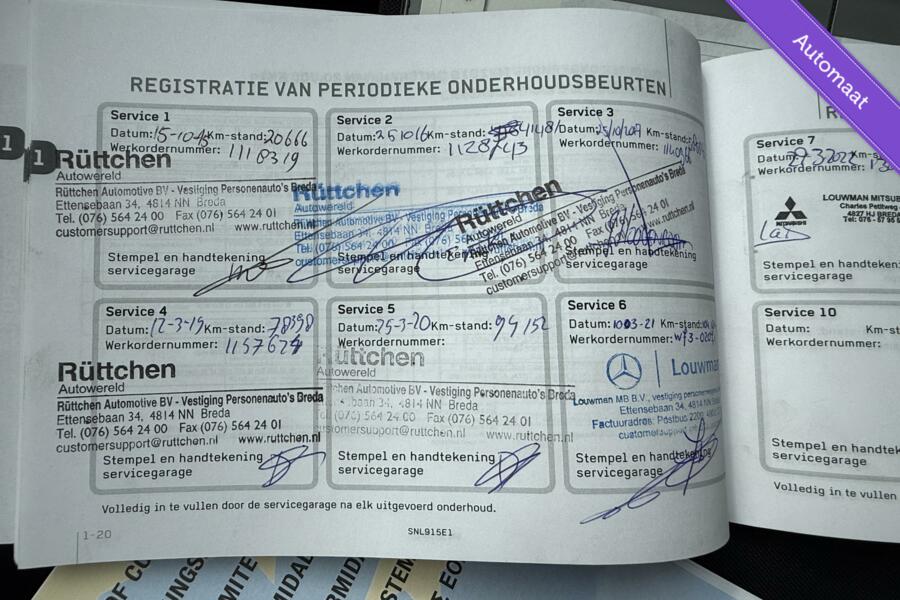 Automaat
REGISTRATIE VAN PERIODIEKE ONDERHOUDSBEURTEN
1
1
Service 1
Datum: Km-stand: 20666
Werkordernummer: 1118319
Rüttchen
Autowereld
Rüttchen Automotive BV - Vestiging Personenauto's Breda
Ettensebaan 34, 4814 NN Breda
Tel. (076) 564 24 00 Fax (076) 564 24 01
customersupport@ruttchen.nl www.ruttchen.nl
Stempel en handtekening
servicegarage
Service 2
Datum: 251016 Km-stand:
Werkordernummer: 1128743
Rüttchen
Autowereld
Rüttchen Automotive BV - Vestiging Personenauto's Breda
Ettensebaan 34, 4814 NN Breda
Tel. (076) 564 24 00 Fax (076) 564
Stempel en handtekening
servicegarage
Service 3
Datum: Km-stand:
Werkordernummer:
Rüttchen
Autowereld
Rüttchen Automotive BV - Vestiging Personenauto's Breda
Ettensebaan 34, 4814 NN Breda
Tel. (076) 564 24 00 Fax (076) 564 24 01
customersupport@ruttchen.nl www.ruttchen.nl
Stempel en handtekening
servicegarage
Service 4
Datum: 12-3-19 Km-stand: 78398
Werkordernummer: 1157624
Rüttchen
Autowereld
Rüttchen Automotive BV - Vestiging Personenauto's Breda
Ettensebaan 34, 4814 NN Breda
Tel. (076) 564 24 00 Fax (076) 564 24 01
customersupport@ruttchen.nl www.ruttchen.nl
Stempel en handtekening
servicegarage
Service 5
Datum: 25-3-20 Km-stand: 94152
Werkordernummer:
Rüttchen
Autowereld
Automotive BV - Vestiging Personenauto's Breda
34, 4814 NN Breda
(076) 564 24 00 Fax (076) 564 24 01
customersupport@ruttchen.nl www.ruttchen.nl
Stempel en handtekening
servicegarage
Service 6
Datum: 1003-21 Km-stand:
Werkordernummer:
Louwman
Louwman MB B.V., vestiging
Ettensebaan 34, 4814 NN
Factuuradres: Postbus
Stempel en handtekening
servicegarage
Volledig in te vullen door de servicegarage na elk uitgevoerd onderhoud.
1-20
SNL915E1
R
Service 7
Datum: Km-s
Werkordernummer:
MITSUBISHI
LOUWMAN MITSUB
Charles Petitweg
4827 HJ BREDA
Stempel en handteken
servicegarage
Service 10
Datum: Km-st
Werkordernummer:
Stempel en handteken
servicegarage
Volledig in te vullen